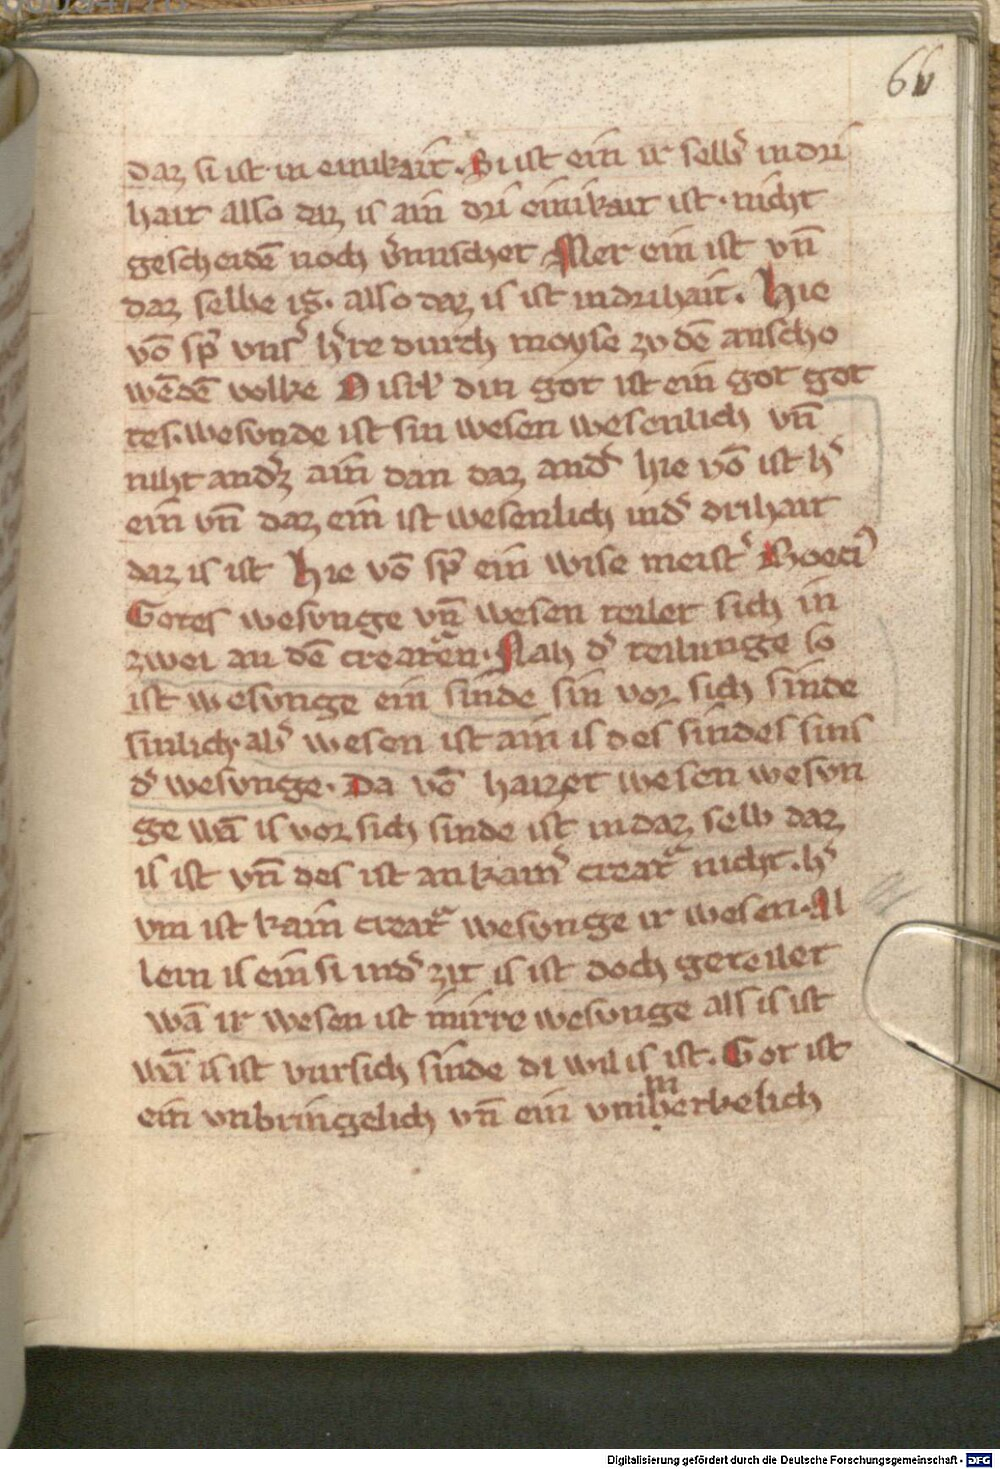 66
daz si ist in einikait. Si ist ein ir selbˢ in dri
hait also daz is ain dri einikait ist. nicht
gescheidē noch v̾mischet Mer ein ist vn̄
daz selbe is. also daz is ist in drihait. Hie
vō sp̄ͨ vnsˢ h̾re durch moyse zv dē anscho
wēdē volke Disrl̾ din got ist ein got got
tes. wesvnde ist sin wesen wesenlich vn̄
niht andˢz ain dan daz andˢ hie vō ist hˢ
ein vn̄ daz ein ist wesenlich in dˢ drihait
daz is ist Hie vō sp̄ͨ ein wise meistˢ Boeciˀ
Gotes wesvnge vn̄ wesen teilet sich in
zwei an dē creatᵃen. Nah dˢ teilunge so
ist wesvnge ein sinde sin vor sich sinde
sinlich. abˢ wesen ist ain is des sindes sins
dˢ wesvnge. Da vō haizet wesen wesvn
ge wā is vor sich sinde ist in daz selb daz
is ist vn̄ des ist an kainˢ creatᵃ nicht. hˢ
vm ist kain creatᵃ wesvnge ir wesen. Al
lein is ein si in dˢ zit is ist doch geteilet
wā ir wesen ist nit ire wesvnge als is ist
wā is ist vur sich sinde di wil is ist. Got ist
ein vnbringelich vn̄ ein vnmerkelich
Digitalisierung gefördert durch die Deutsche Forschungsgemeinschaft - DFG